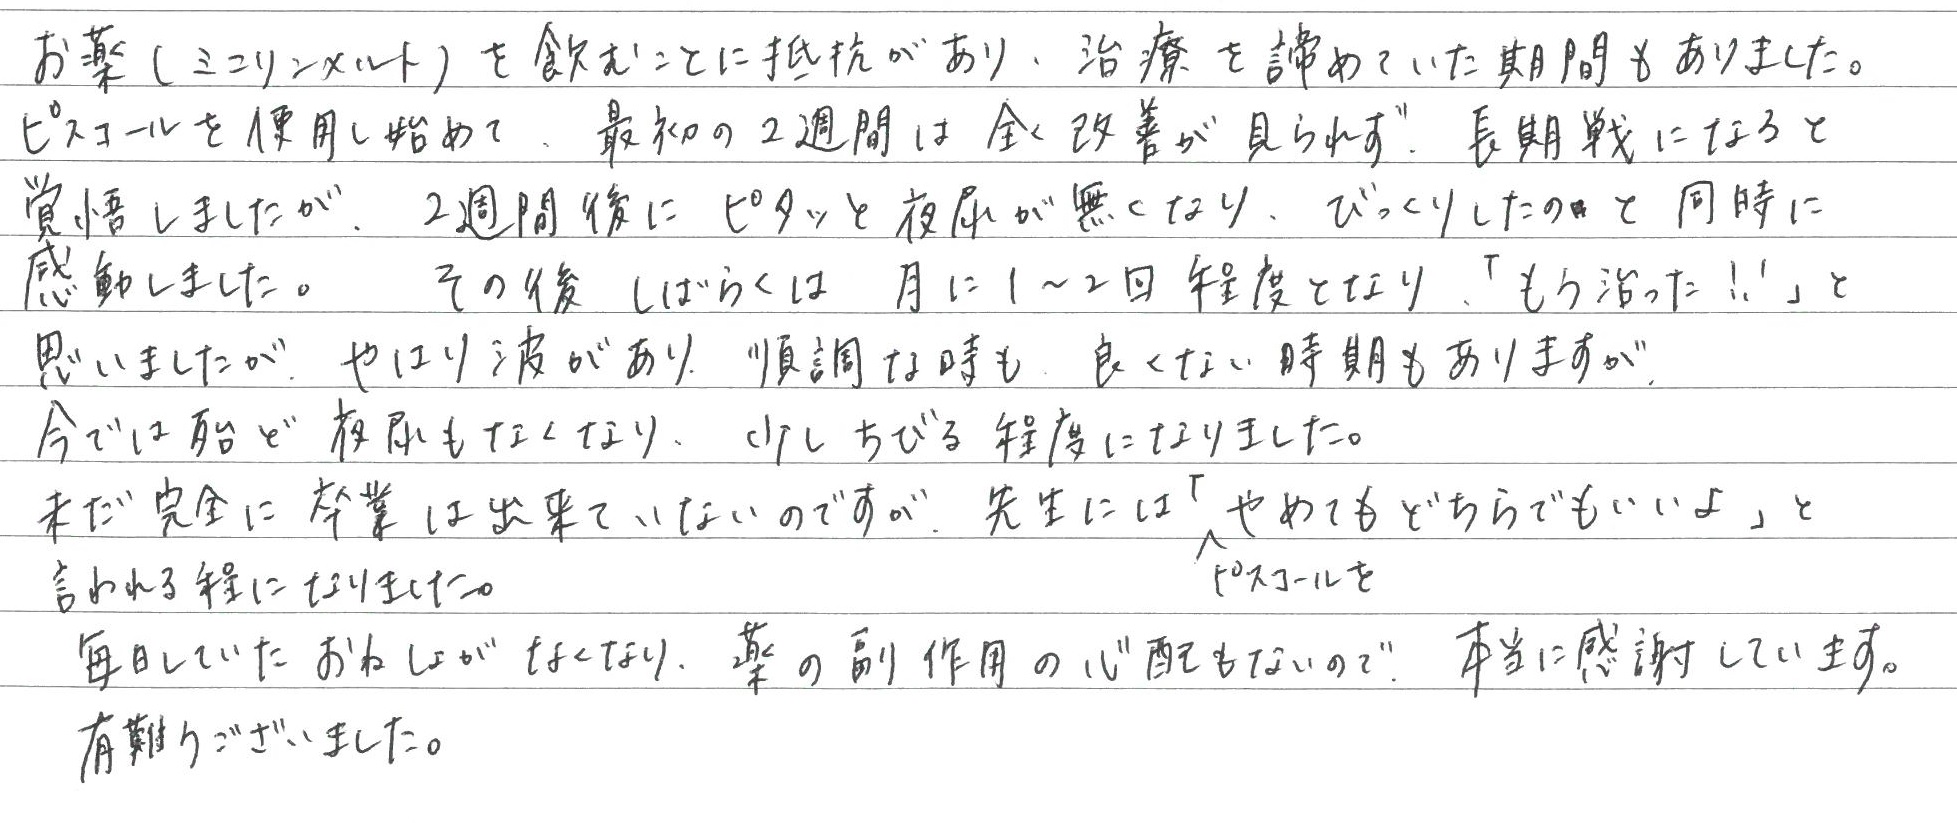 お薬(ミニリンメルト)を飲むことに抵抗があり、治療を諦めていた期間もありました。
ピスコールを使用し始めて、最初の2週間は全く改善が見られず、長期戦になると
覚悟しましたが、2週間後にピタッと夜尿が無くなり、びっくりしたのと同時に
感動しました。 その後しばらくは月に1~2回程度となり、「もう治った!!」と
思いましたが、やはり波があり、順調な時も、良くない時期もありますが、
今では殆ど夜尿もなくなり、少しちびる程度になりました。
未だ完全に卒業は出来ていないのですが、先生には「やめてもどちらでもいいよ」と
ピスコールを
言われる程になりました。
毎日していたおねしょがなくなり、薬の副作用の心配もないので、本当に感謝しています。
有難うございました。